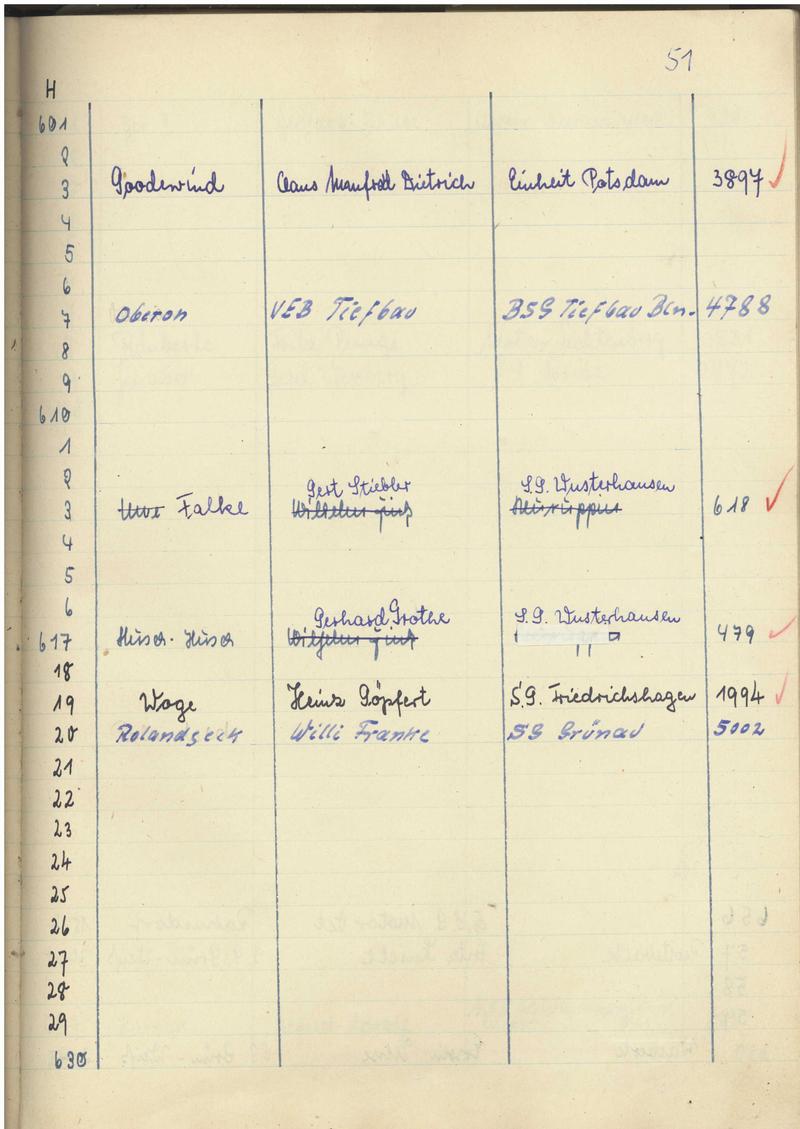 51
H
601
2
3 Goodewind Claus Manfred Dietrich Einheit Potsdam 3897
4
5
6
7 Oberon VEB Tiefbau BSG Tiefbau Bln. 4788
8
9
610
1
2 Gert Stiebler S.G. Wusterhausen
3 Uwe Falke Wilhelm Neuruppin 618
4
5
6 Gerhard Grothe S.G. Wusterhausen
617 Husch-Husch Wilhelm 479
18
19 Woge Heinz Göpfert S.G. Friedrichshagen 1994
20 Rolandseck Willi Franke SG Grünau 5002
21
22
23
24
25
26
27
28
29
630